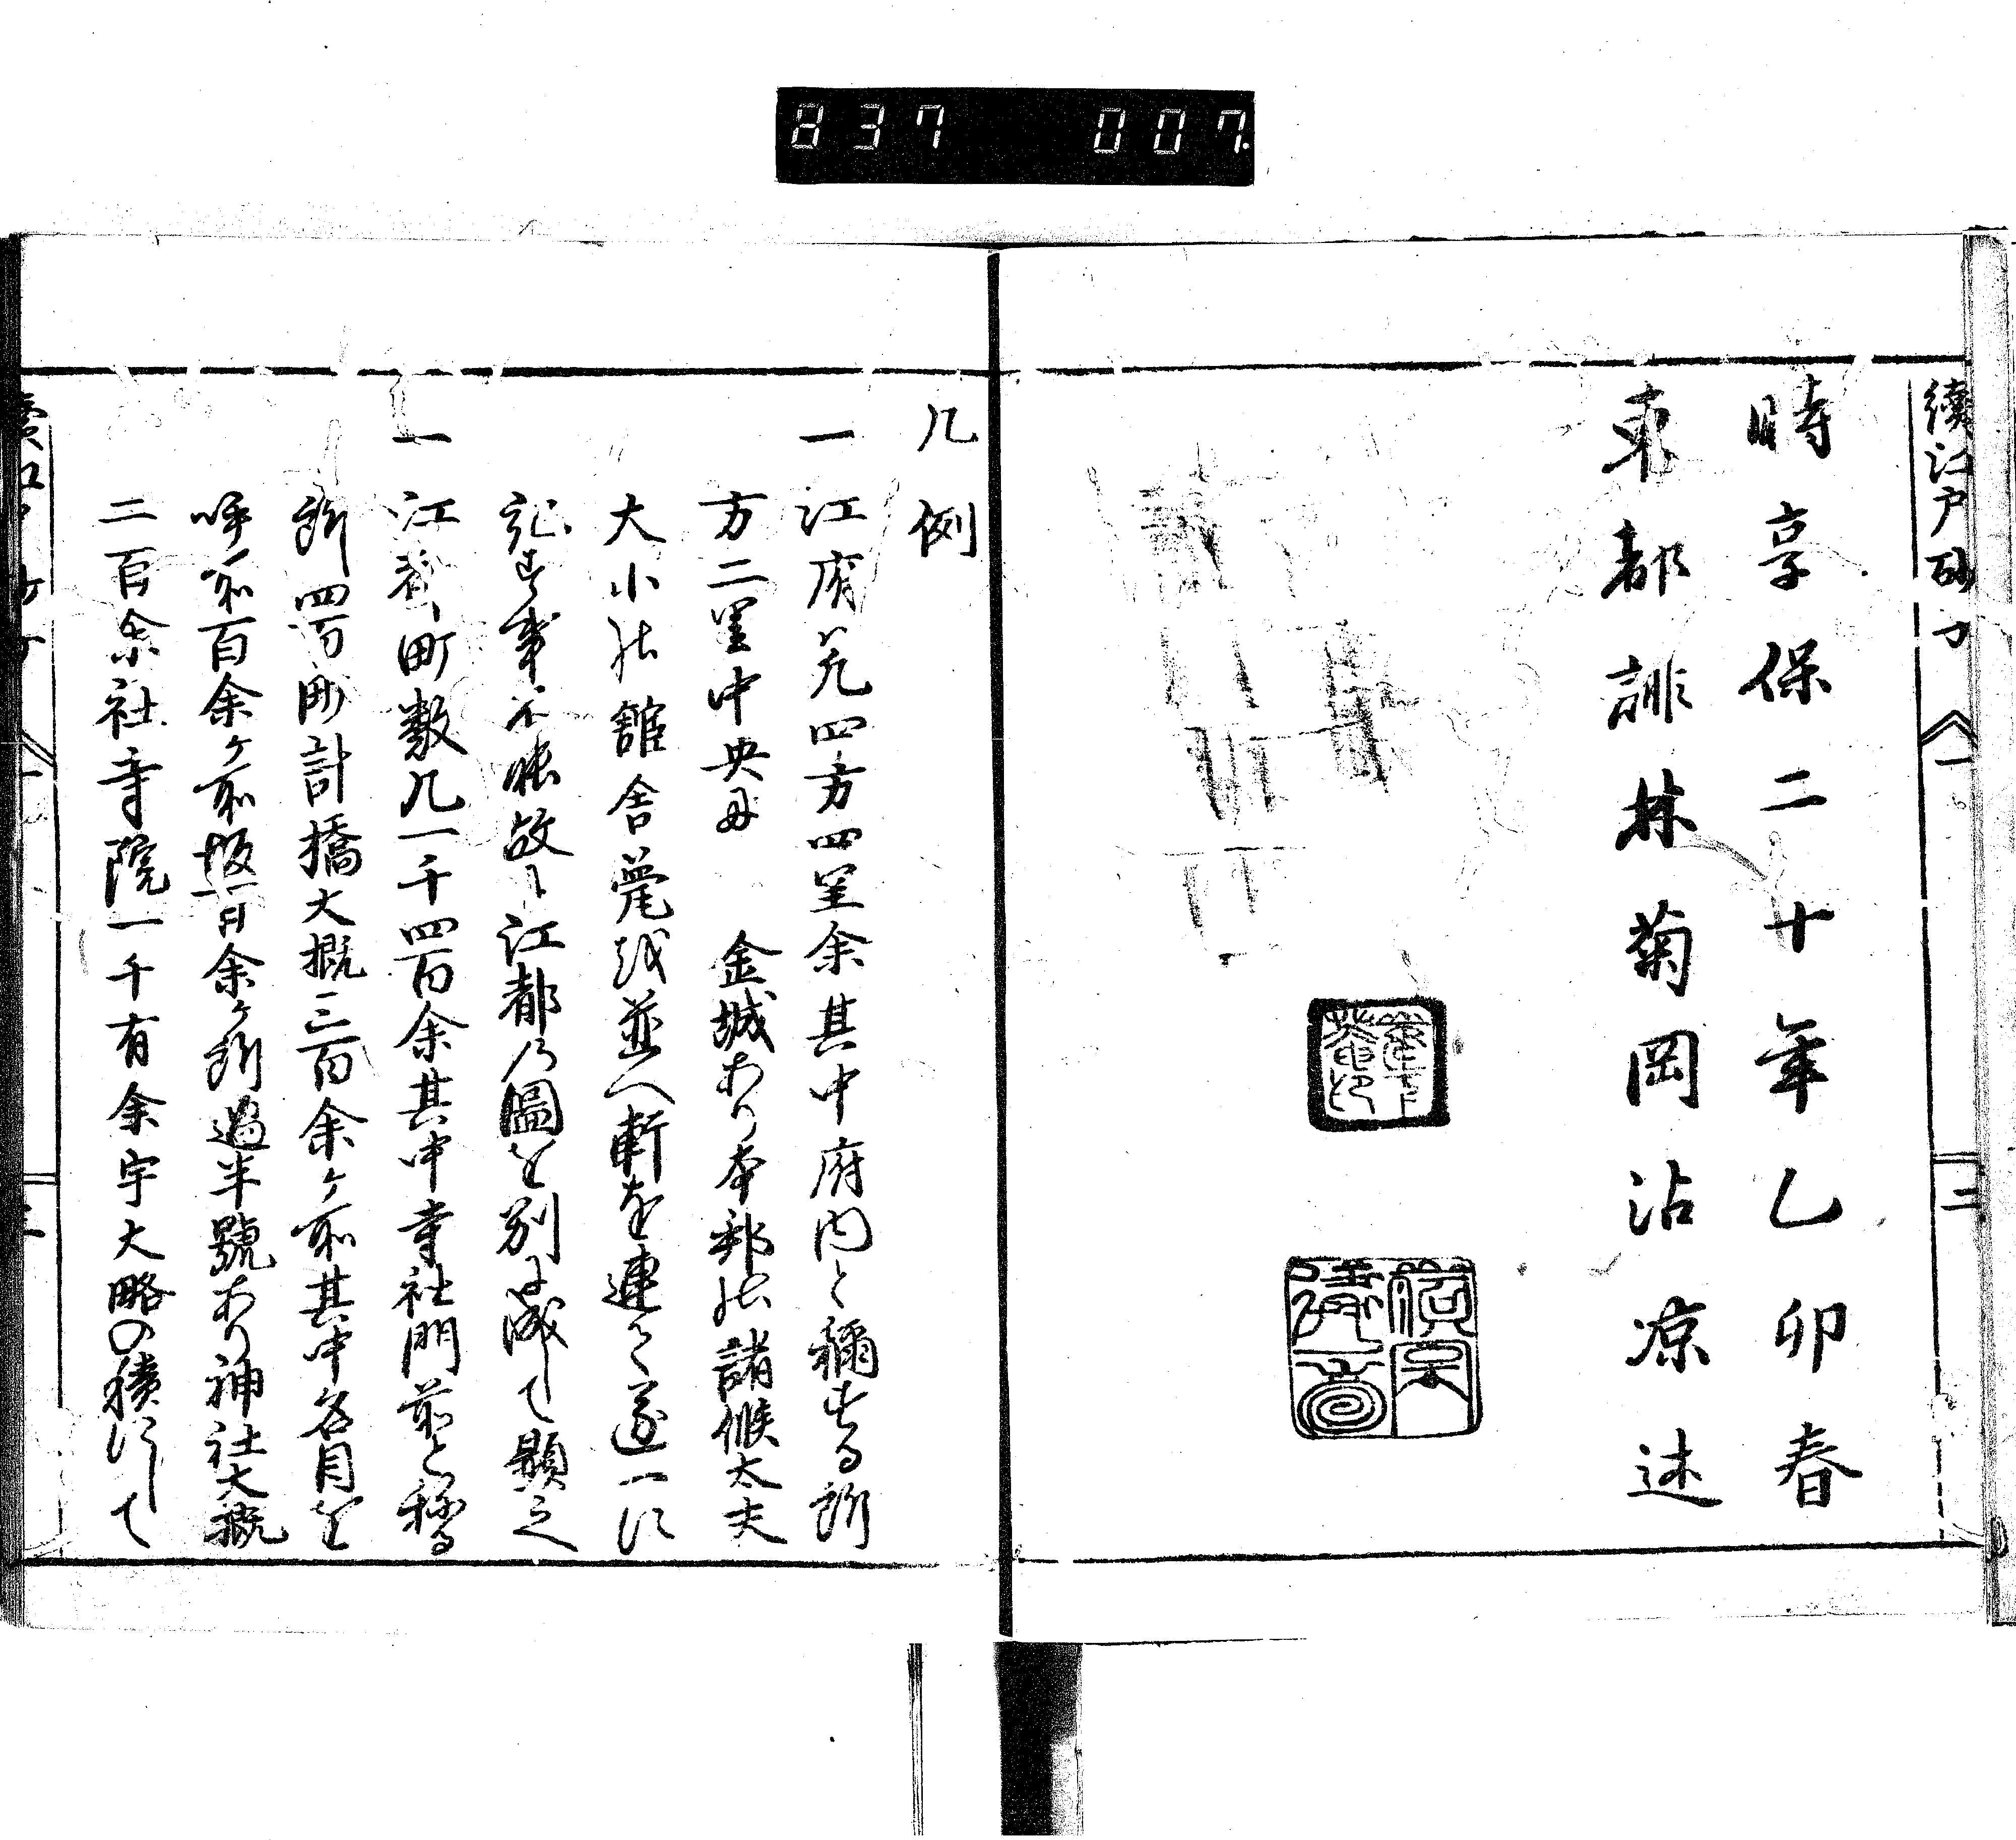 837 007.
續江戸砂子 一 二
時享保二十年乙卯春
東都誹林菊岡沾凉述
凡例
一江府凡四方四里余其中府内と稱する所
方二里中央に 金城あり本邦の諸侯太夫
大小の舘舎甍を並へ軒を連て逐一に
記す事不能故に江都の圖を別に成して顕之
一江都町数凡一千四百余其中寺社門前と稱る
所四百町計橋大概三百余ケ所其中名目を
呼所百余ケ所坂百余ケ所過半號あり神社大概
二百余社寺院一千有余宇大略の積にして